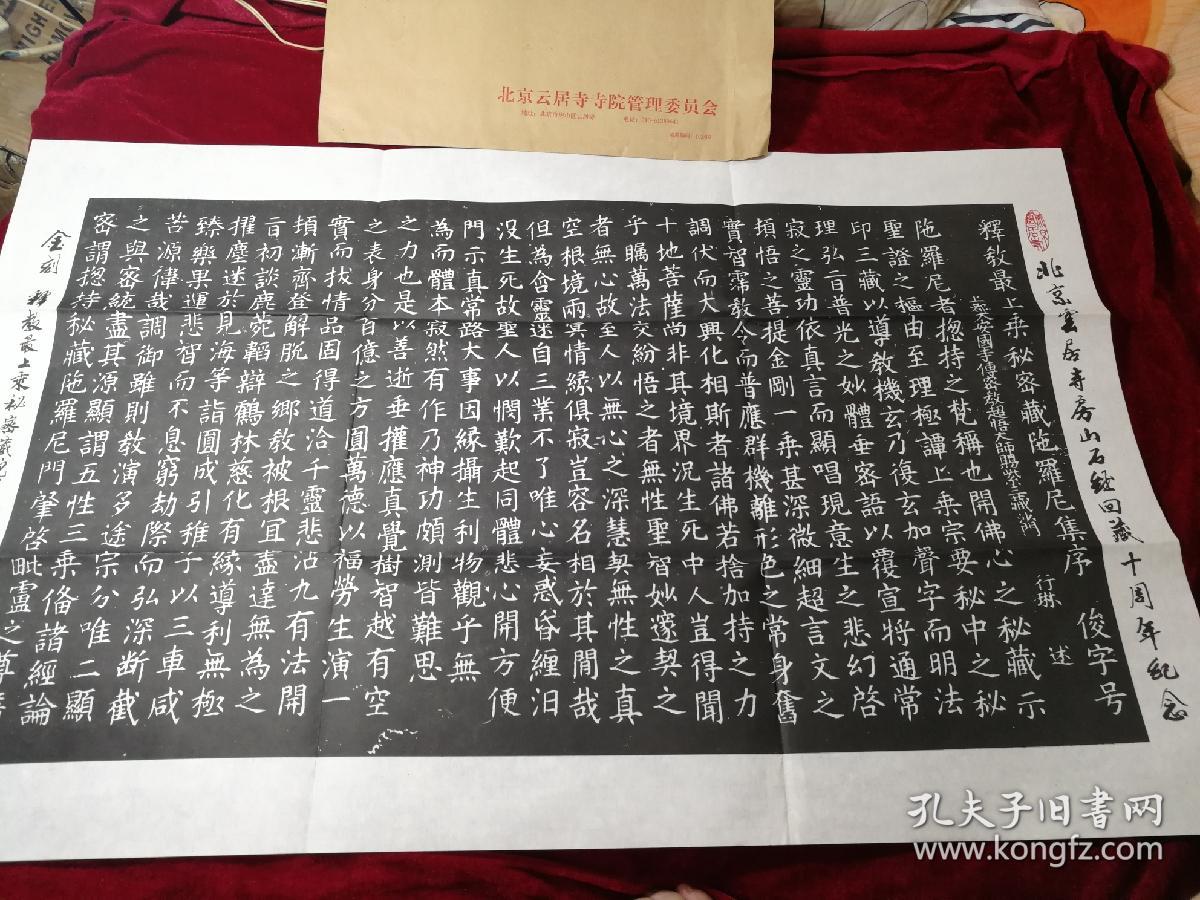 北京云居寺寺院管理委员会
北京雲居寺房山石经回藏十周年纪念
釋教最上乘秘密藏陁羅尼集序 俊字号
行琳 述
陁羅尼者惣持之梵稱也開佛心之秘藏示
聖證之樞由至理極譚上乘宗要秘中之秘
印三藏以導教機玄乃復玄加聲字而明法
理弘旨普光之妙體垂密語以覆宣將通常
寂之靈功依真言而顯唱現意生之悲幻啓
頓悟之菩提金剛一乘甚深微細超言文之
實智霈教令而普應群機離形色之常身奮
調伏而大興化相斯者諸佛若捨加持之力
十地菩薩尚非其境界況生死中人豈得聞
乎矚萬法交紛悟之者無性聖智妙邃契之
者無心故至人以無心之深慧契無性之真
空根境兩冥情緣俱寂豈容名相於其閒哉
但為含靈迷自三業不了唯心妄惑昏纏汨
没生死故聖人以憫歎起同體悲心開方便
門示真常路大事因緣攝生利物觀乎無
為而體本寂然有作乃神功頗測皆難思
之力也是以善逝垂權應真覺樹智越有空
之表身分百億之方圓萬德以福勞生演一
實而拔情品固得道洽千靈悲沾九有法開
頓漸齊登解脫之鄉教被根宜盡達無為之
旨初談鹿菀韜辯鶴林慈化有緣導利無極
擢塵迷於見海等詣圓成引稚子以三車咸
臻樂果運悲智而不息窮劫際而弘深断截
苦源偉哉調御雖則教演多途宗分唯二顯
之與密統盡其源顯謂五性三乘俻諸經論
密謂惣持秘藏陁羅尼門肇啓毗盧之尊
金刻 釋教最上乘秘密藏
孔夫子旧书网
www.kongfz.com